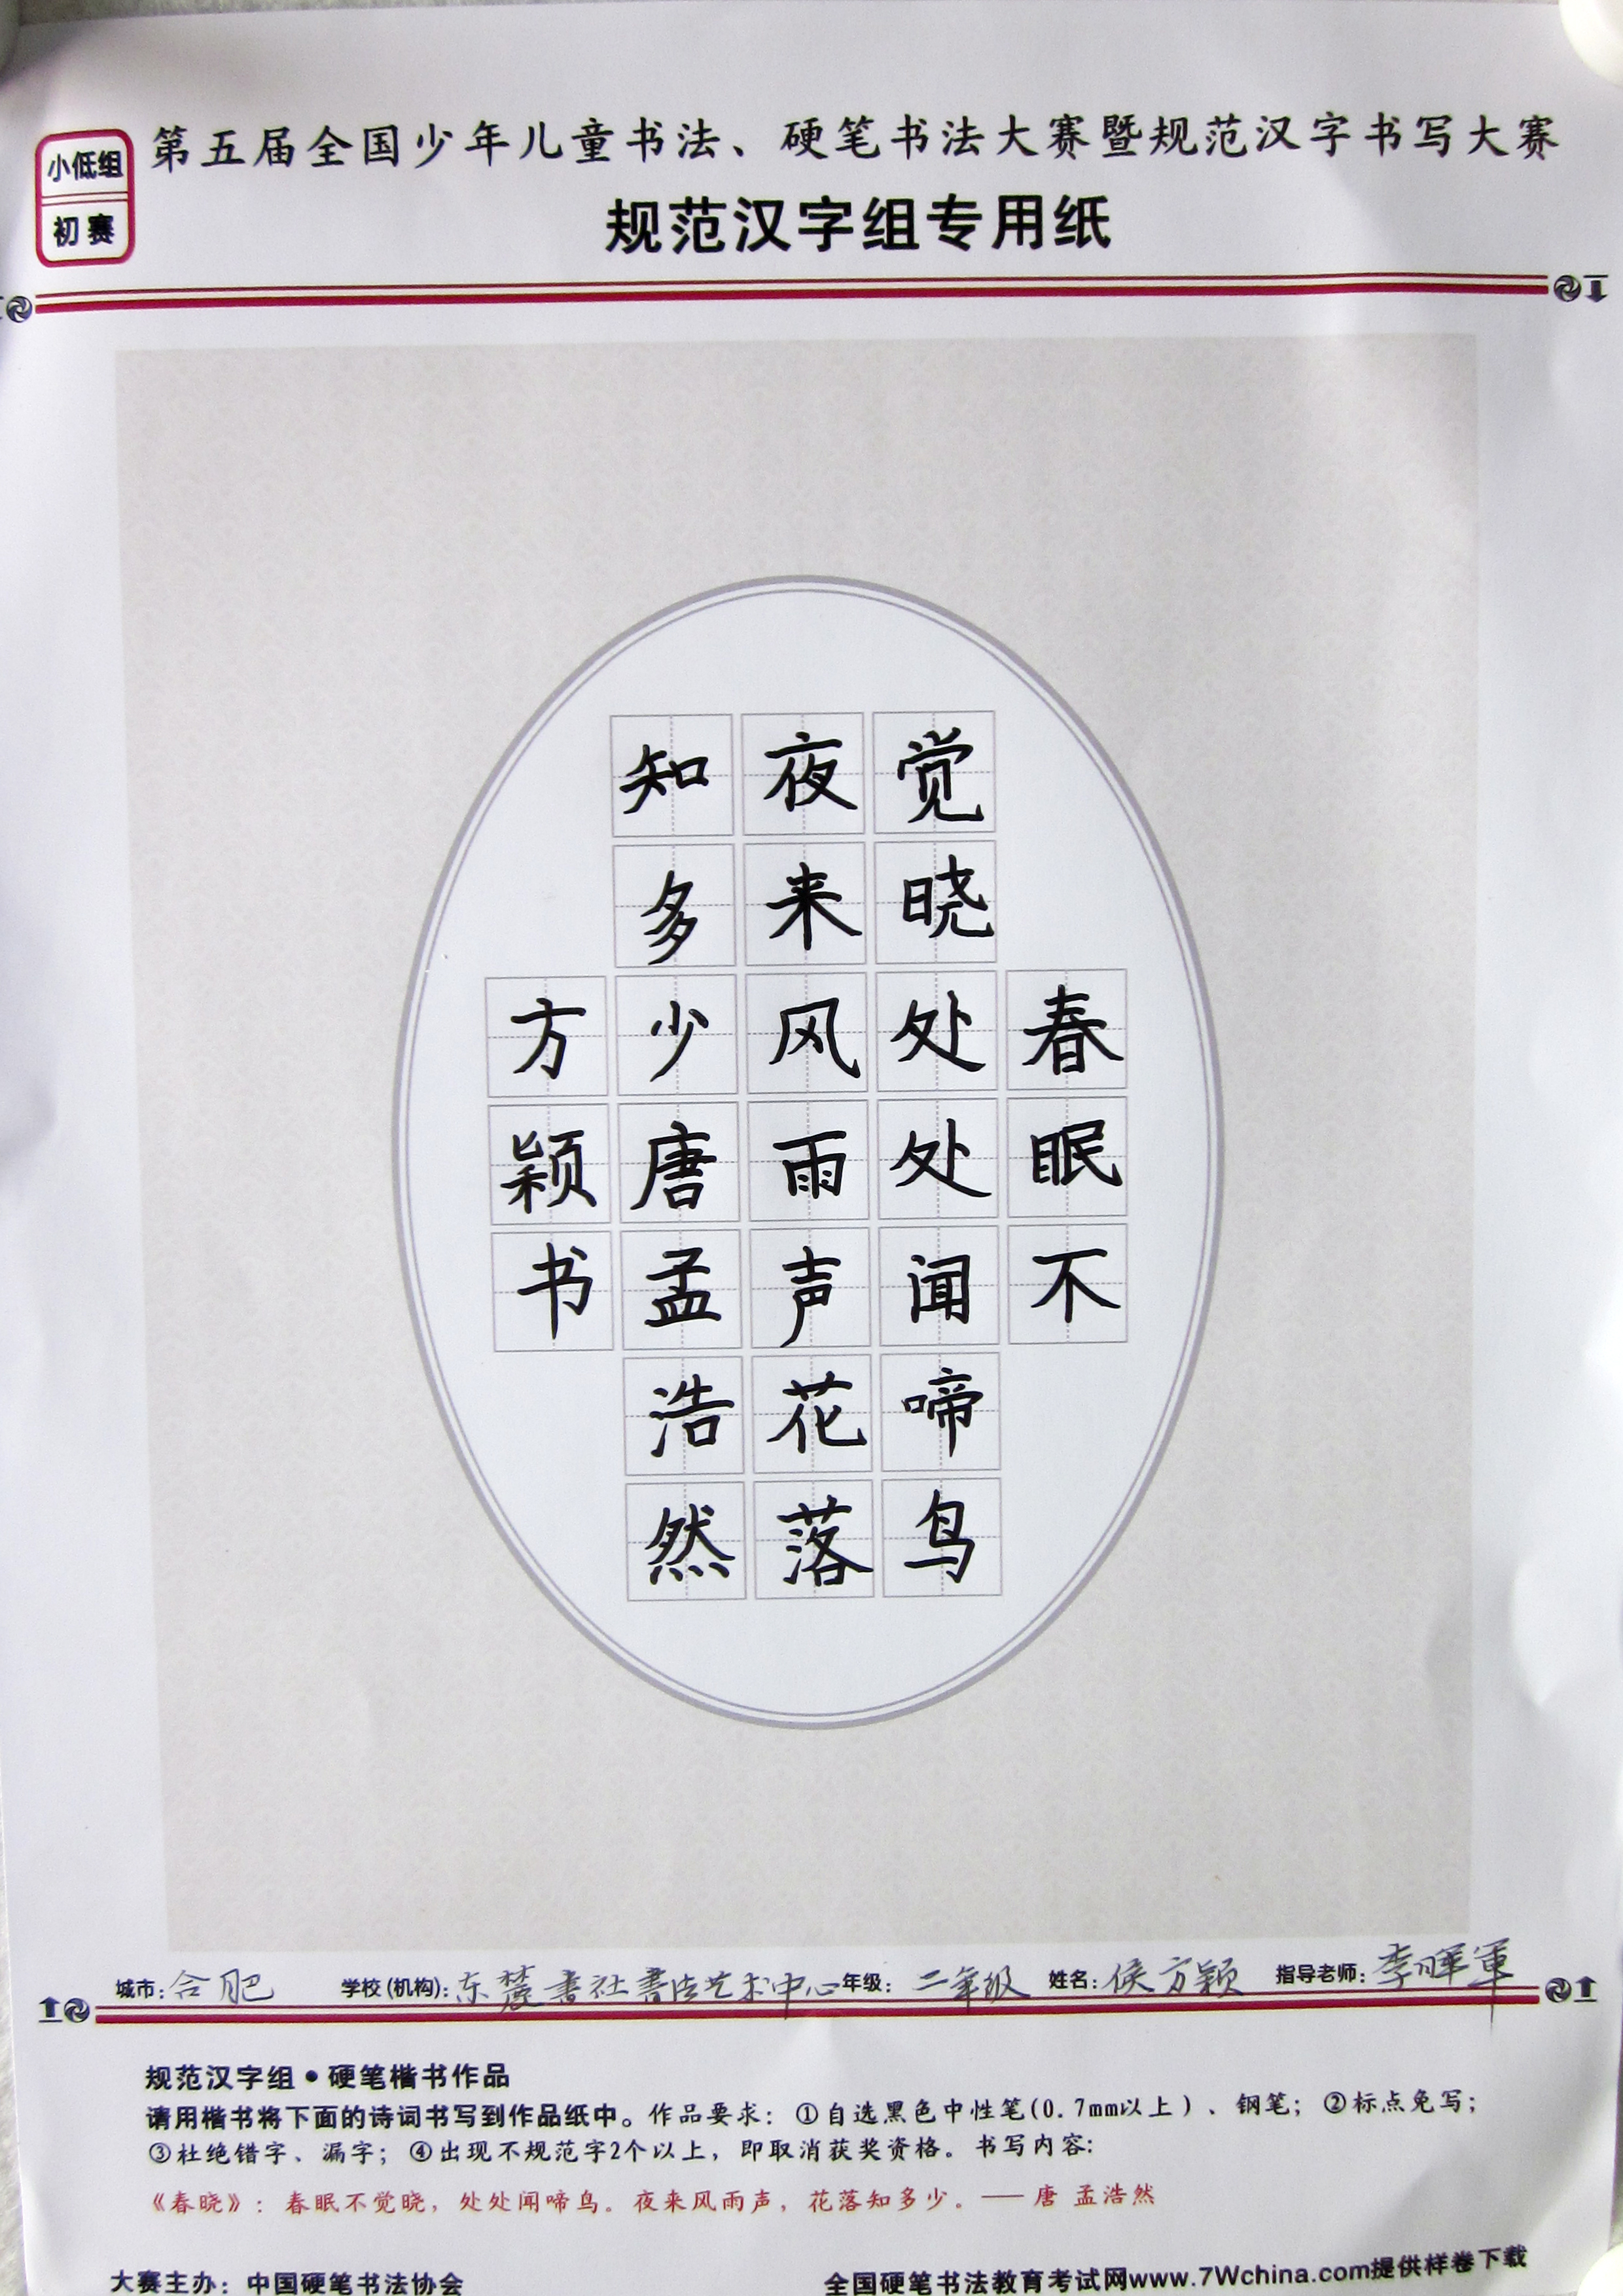 小低组
初赛
第五届全国少年儿童书法、硬笔书法大赛暨规范汉字书写大赛
规范汉字组专用纸
春眠不
觉晓处处闻啼鸟
夜来风雨声花落
知多少唐孟浩然
方颖书
城市：合肥 学校（机构）：东麓書社書法艺术中心 年级：二年级 姓名：侯方颖 指导老师：李晖軍
规范汉字组•硬笔楷书作品
请用楷书将下面的诗词书写到作品纸中。作品要求：①自选黑色中性笔(0.7mm以上）、钢笔；②标点免写；
③杜绝错字、漏字；④出现不规范字2个以上，即取消获奖资格。书写内容：
《春晓》：春眠不觉晓，处处闻啼鸟。夜来风雨声，花落知多少。——唐 孟浩然
大赛主办：中国硬笔书法协会 全国硬笔书法教育考试网www.7Wchina.com提供样卷下载